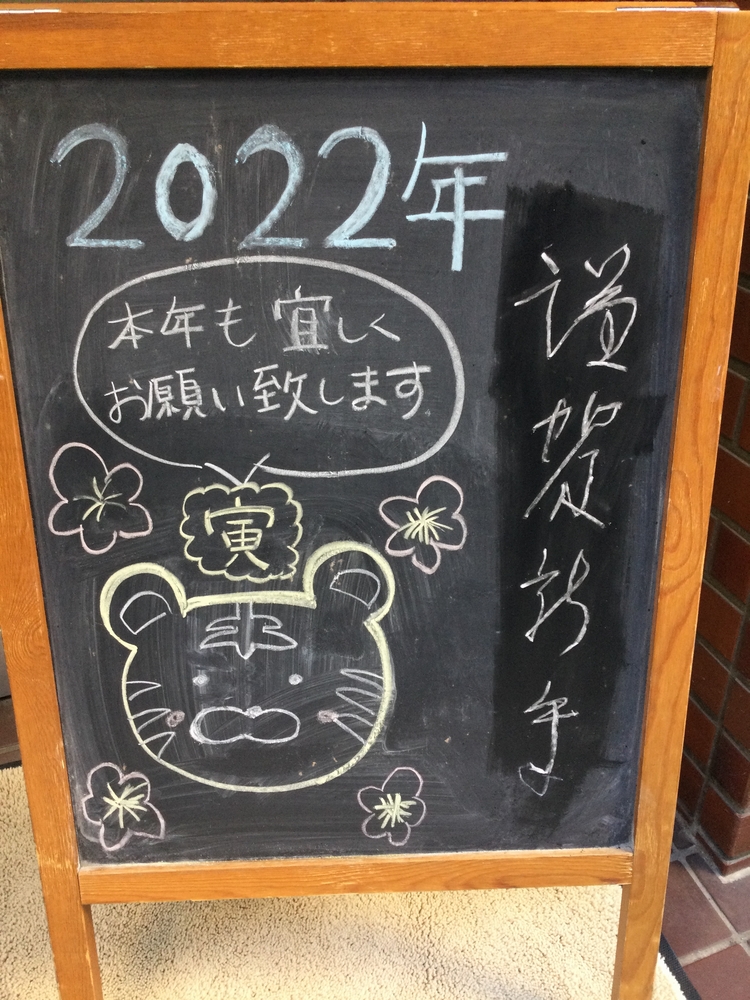 2022年
謹賀新年
本年も宜しく
お願い致します
寅